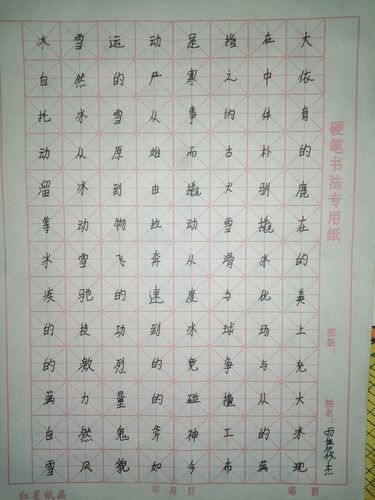 冰雪运动是指在大
自然的严寒之中依
托冰雪从事的体育
动从原始而古朴的
溜冰到由撬犬驯鹿
等动物拉动雪撬在
冰雪飞奔从滑冰的
疾驰的速度与优美
的技巧到冰球场上
的激烈的竞争与充
满力量的碰撞从大
自然鬼斧神工的冰
雪风貌如今布满现
硬笔书法专用纸
班级:
姓名
红星纸品
年 月 日
第 页